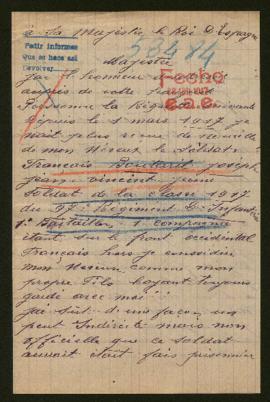 à Sa Majesté le Roi D'Espagne
Pedir informes
Que se hace así
devolver
58484
Majesté
jai l'honneur de
Fecha
auprès de votre
1917
Personne la
e.a.e.
depuis le 1 mars 1917 je
nait plus recue de nouvelle
de mon Neveux le Soldat
Francois joseph
jean vincent
Soldat de la clase 1917
du Regiment D'Infanterie
1er Bataillon, 1 compagnie
étant sur le front occidental
français hors je considère
mon Neveux comme mon
propre Fils layant toujours
gardé avec moi
jai sut d'une façon un
peut Indirecte mais non
officielle que ce soldat
aurait était fais prisonnier